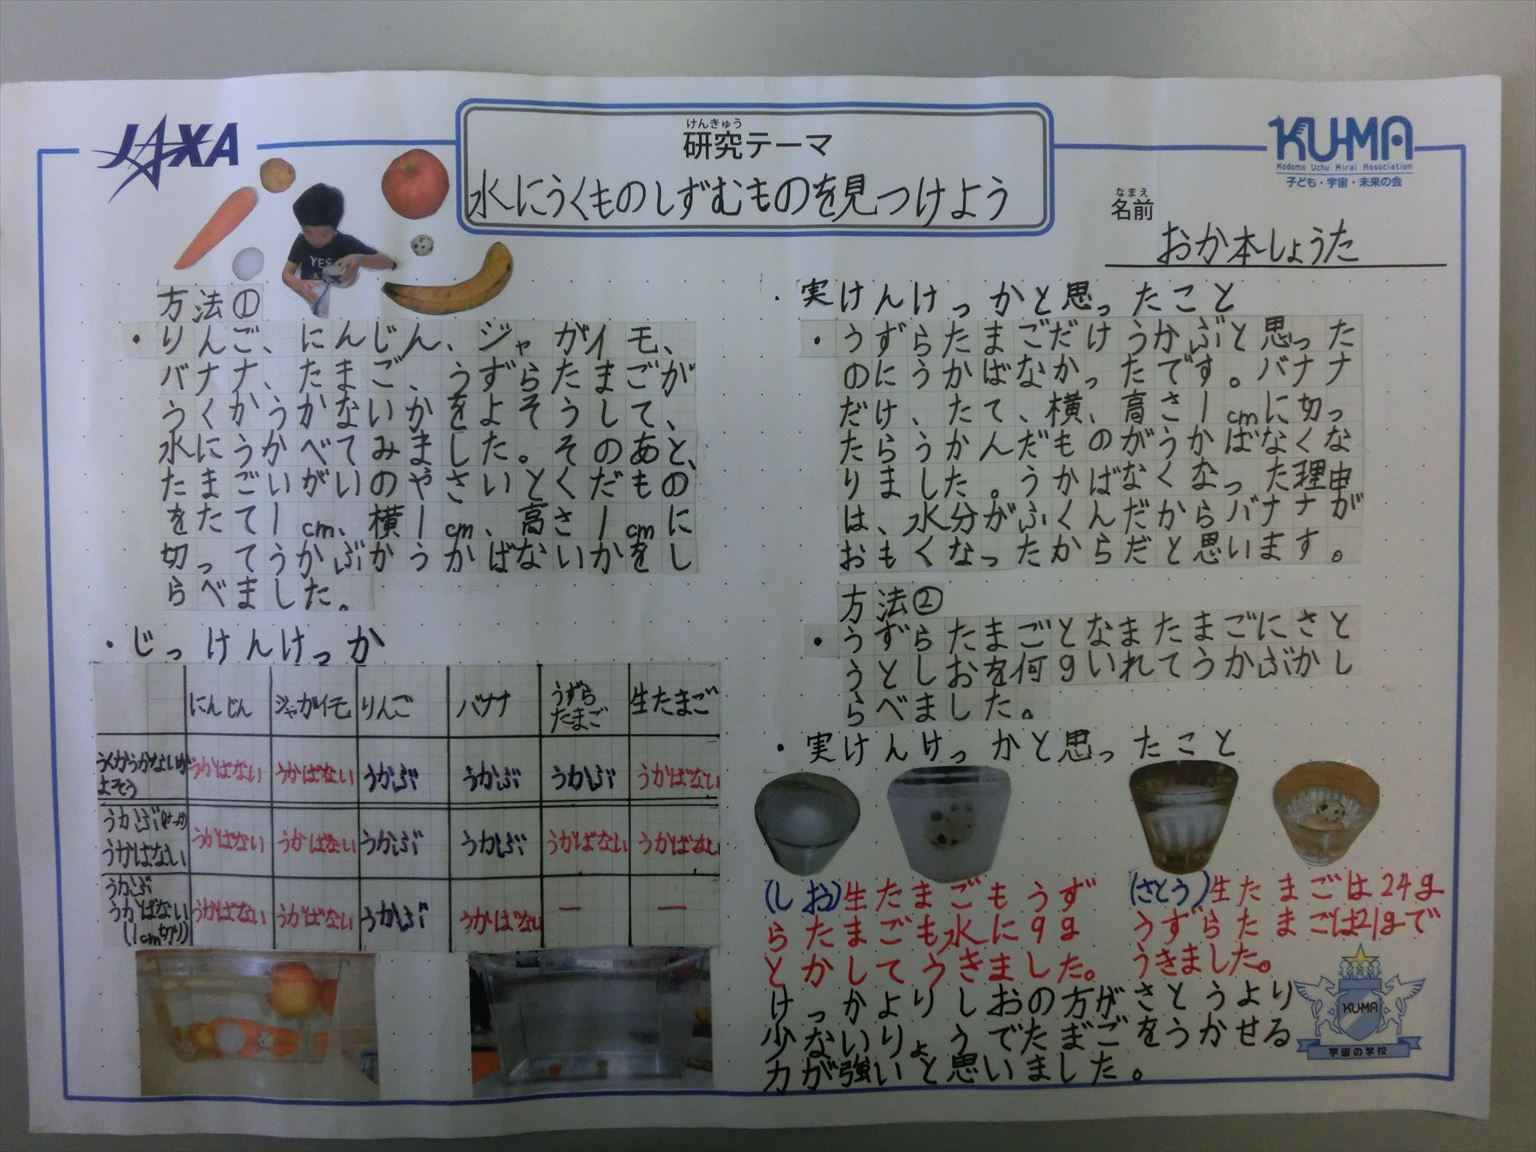 JAXA
けんきゅう
研究テーマ
水にうくものしずむものを見つけよう
KU-MA
Kodomo Uchu Mirai Association
子ども・宇宙・未来の会
なまえ
名前
おか本しょうた
YES
方法①
・りんご、にんじん、ジャガイモ、
バナナ、たまご、うずらたまごが
うくかうかないかをよそうして、
水にうかべてみました。そのあと、
たまごいがいのやさいとくだもの
をたて1cm、横1cm、高さ1cmに
切ってうかぶかうかばないかをし
らべました。
・じっけんけっか
にんじん ジャガイモ りんご バナナ うずらたまご 生たまご
うくかうかないかよそう うかばない うかばない うかぶ うかぶ うかぶ うかばない
うかぶ うかばない うかばない うかばない うかぶ うかぶ うかばない うかばない
うかぶ うかばない (1cm切り) うかばない うかばない うかぶ うかばない ー ー
・実けんけっかと思ったこと
・うずらたまごだけうかぶと思った
のにうかばなかったです。バナナ
だけ、たて、横、高さ1cmに切っ
たらうかんだものがうかばなくな
りました。うかばなくなった理由
は、水分がふくんだからバナナが
おもくなったからだと思います。
方法②
・うずらたまごとなまたまごにさと
うとしおを何gいれてうかぶかし
らべました。
・実けんけっかと思ったこと
(しお)生たまごもうず
らたまごも水に9g
とかしてうきました。
(さとう)生たまごは24g
うずらたまごは21gで
うきました。
けっかよりしおの方がさとうより
少ないりょうでたまごをうかせる
力が強いと思いました。
KU-MA
宇宙の学校